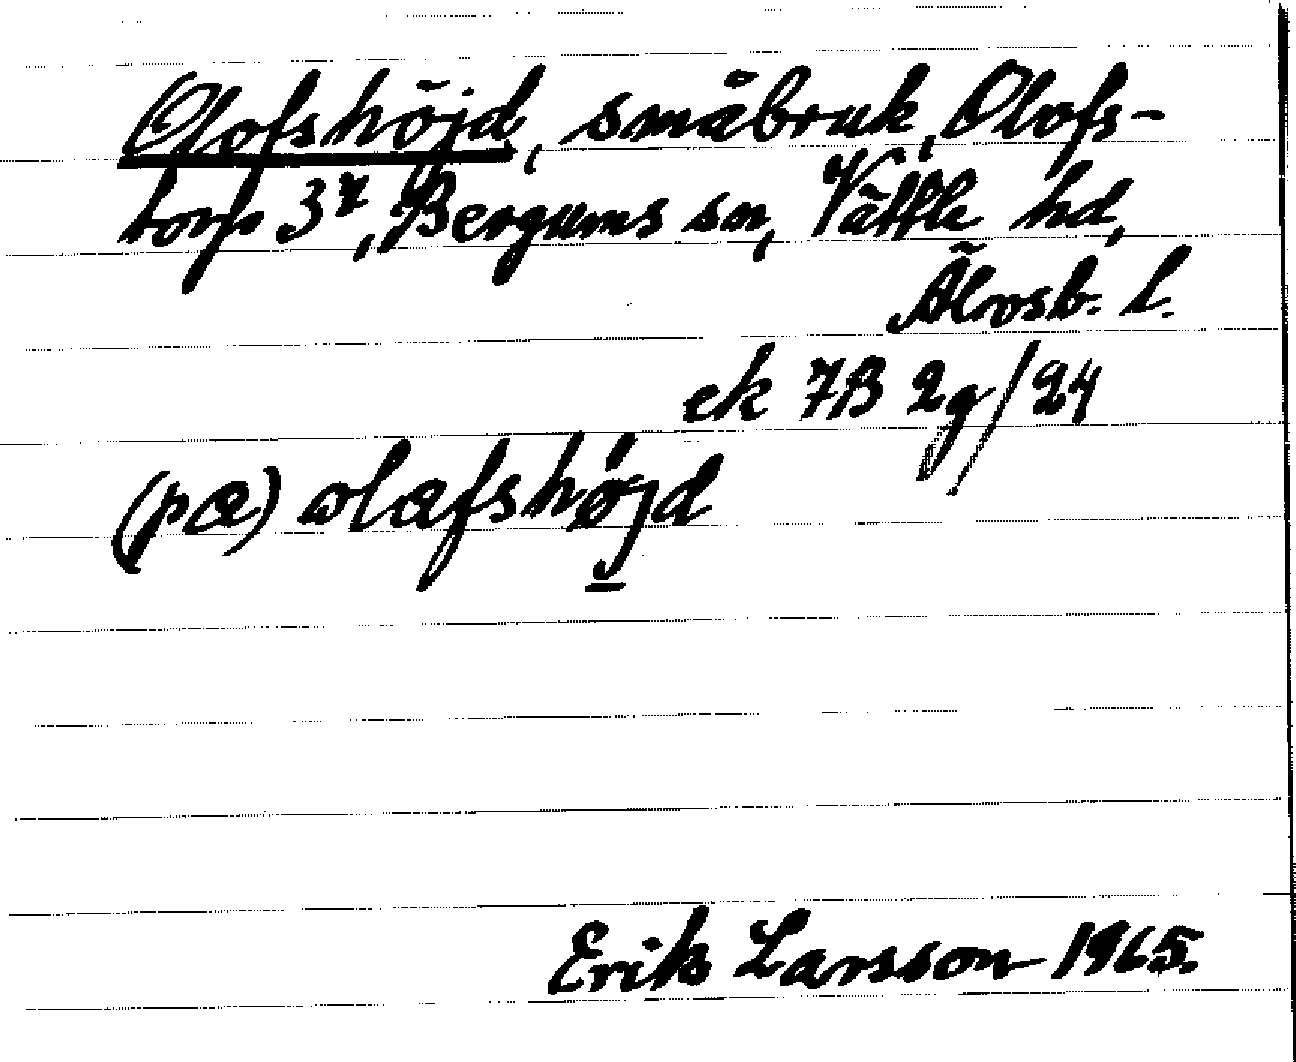 Olofshöjd, småbruk, Olofs-
torp 3⁷, Bergums sn, Vättle hd,
Älvsb. l.
ek 7B 2g/24
(pæ) olæfshøjd
Erik Larsson 1965.